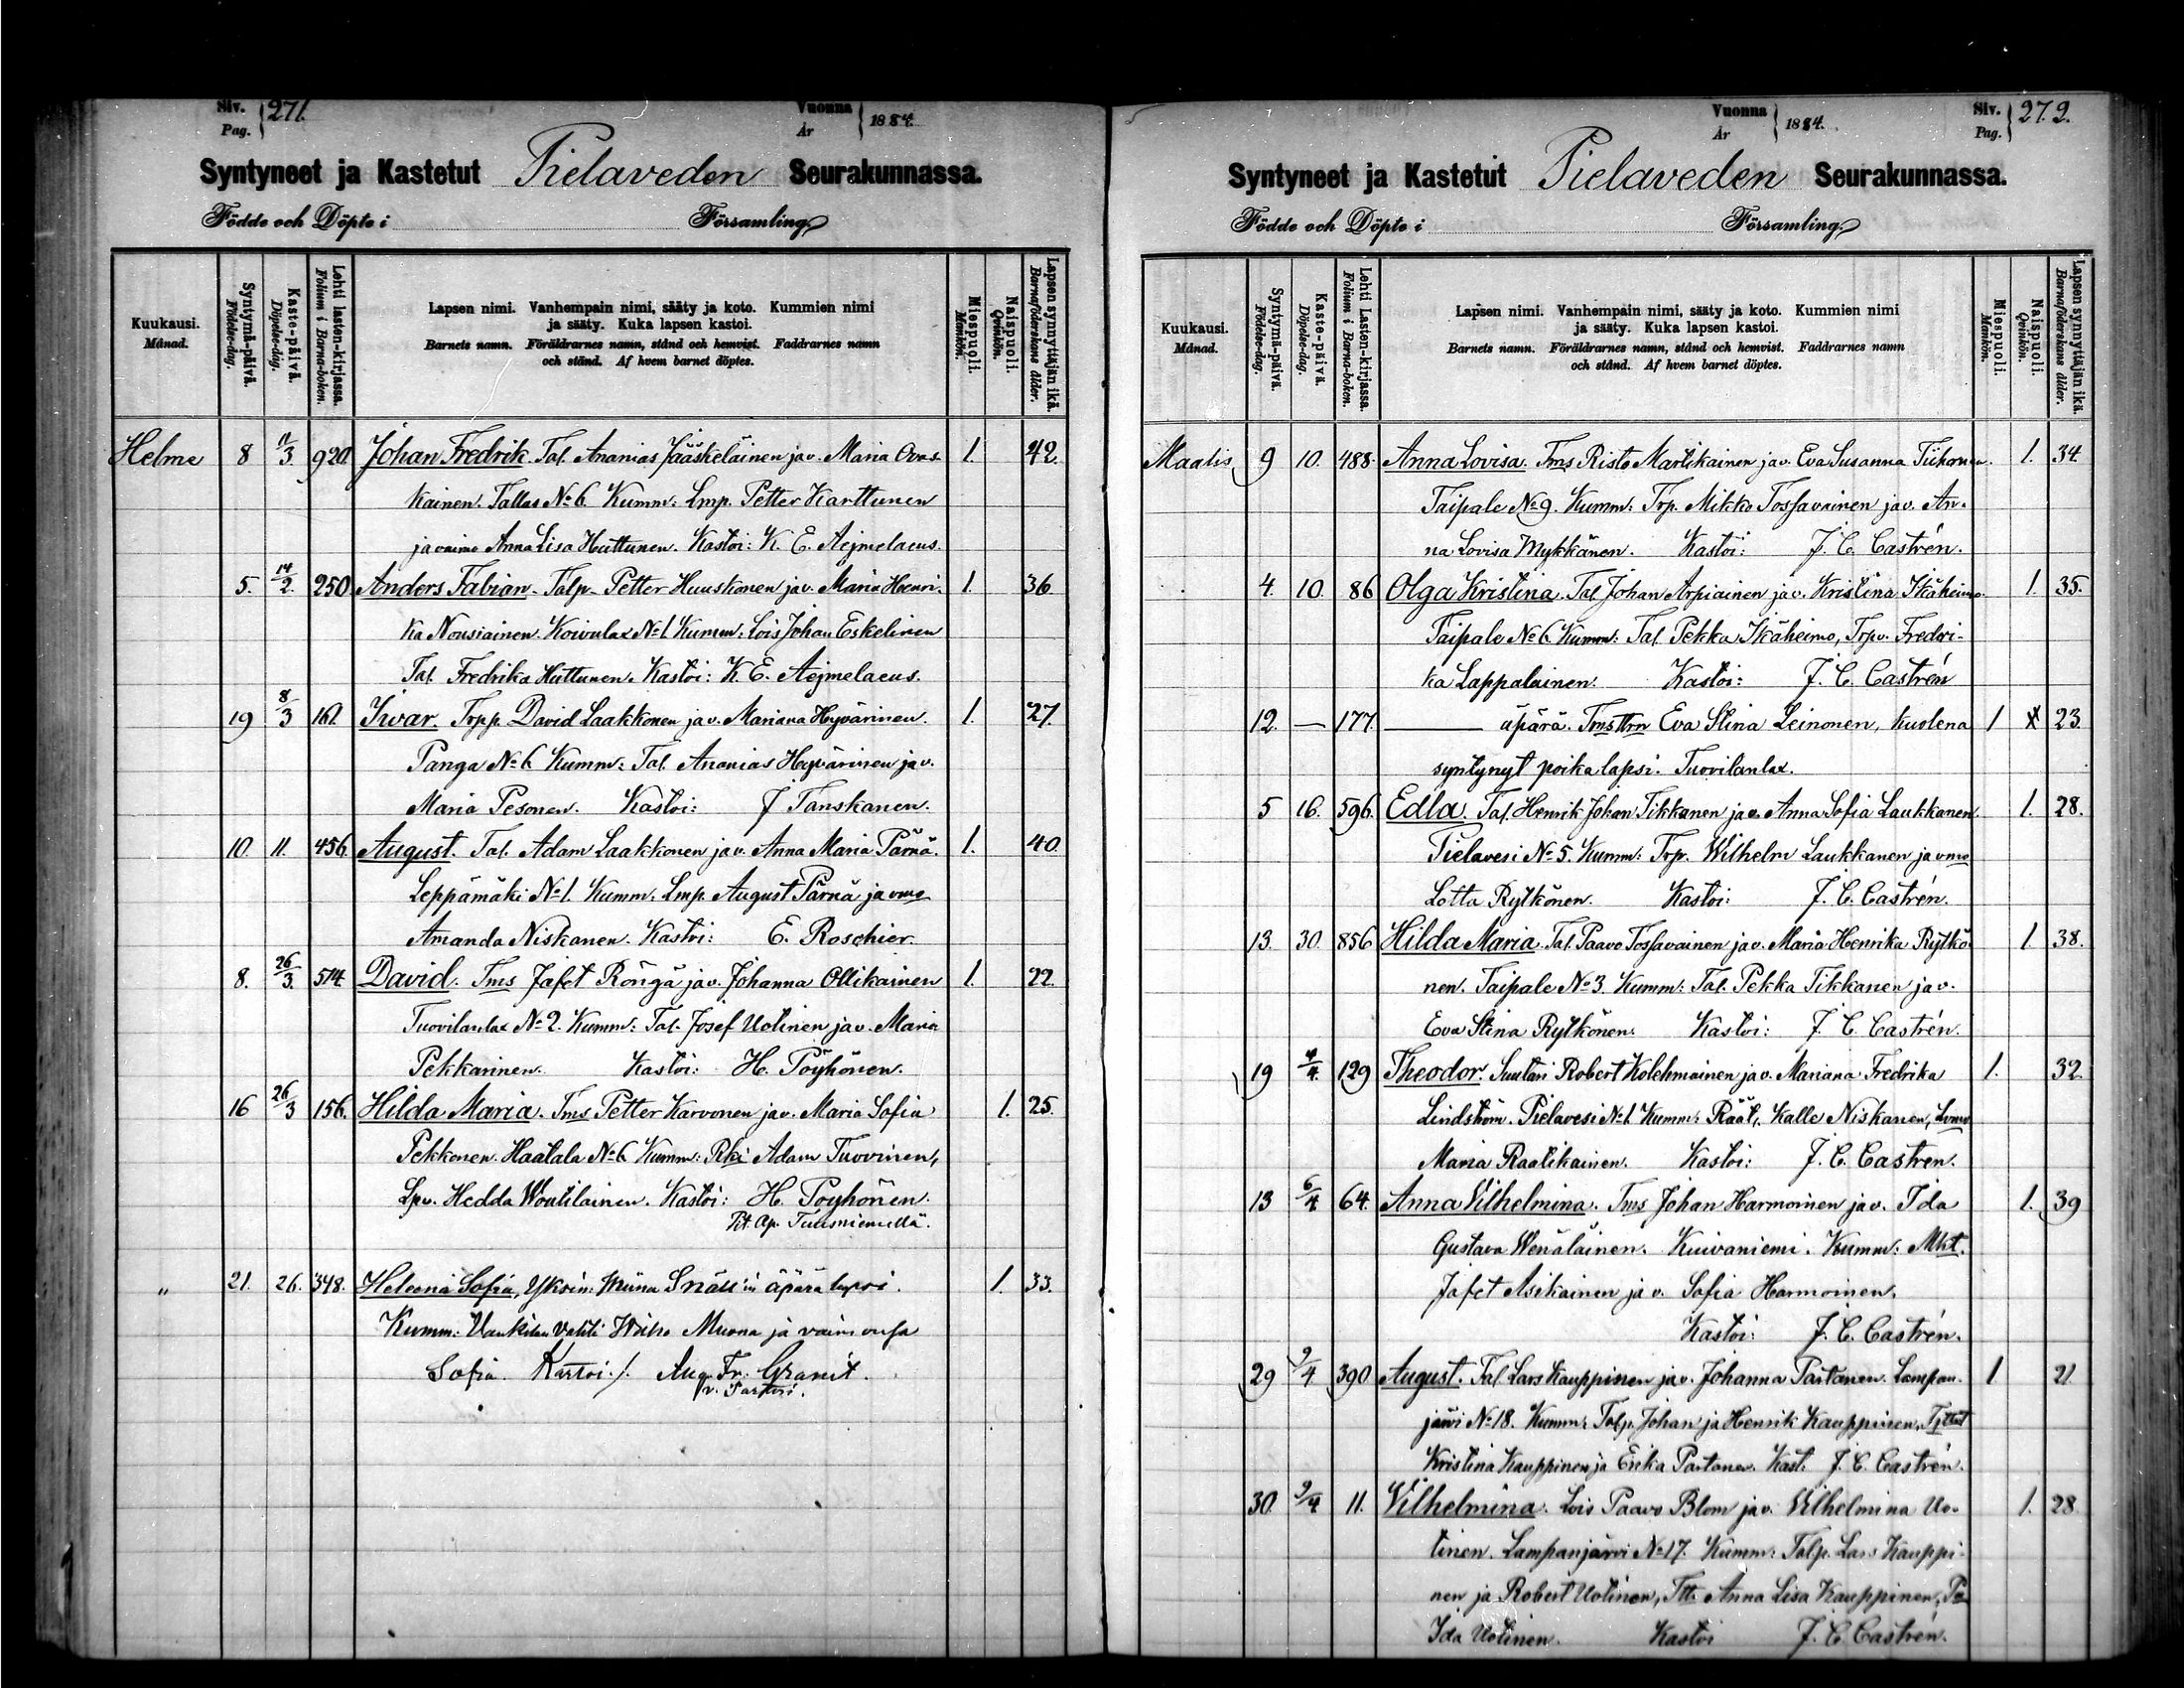 Siv. Pag. 271.
Vuonna År 1884.
Syntyneet ja Kastetut Pielaveden Seurakunnassa.
Födde och Döpte i Församling
Kuukausi. Månad.
Syntymä-päivä. Födelse-dag.
Kaste-päivä. Döpelse-dag.
Lehti lasten-kirjassa. Folium i Barna-boken.
Lapsen nimi. Vanhempain nimi, sääty ja koto. Kummien nimi
ja sääty. Kuka lapsen kastoi.
Barnets namn. Föräldrarnes namn, stånd och hemvist. Faddrarnes namn
och stånd. Af hvem barnet döptes.
Miespuoli. Mankön.
Naispuoli. Qvinkön.
Lapsen synnyttäjän ikä. Barnaföderskans ålder.
Helme 8 11/3 920. Johan Fredrik. Tal. Ananias Jääskeläinen ja v. Maria Ovas- 1. 42.
kainen. Tallas No 6. Kumm: Lmp. Petter Karttunen
ja vaimo Anna Lisa Huttunen. Kastoi: K. E. Aejmelaeus.
5. 14/2. 250. Anders Fabian. Talp. Petter Huuskonen ja v. Maria Henri- 1. 36.
ka Nousiainen. Koivulax No 1. Kumm: Lois Johan Eskelinen
Tal. Fredrika Huttunen. Kastoi: K. E. Aejmelaeus.
19 8/3 161. Iivar. Trpp. David Laakkonen ja v. Mariana Hyvärinen. 1. 27.
Panga No 6. Kumm: Tal. Ananias Hyvärinen ja v.
Maria Pesonen. Kastoi: J Tanskanen.
10. 11. 456. August. Tal. Adam Laakkonen ja v. Anna Maria Pärnä. 1. 40.
Leppämäki No 1. Kumm: Lmp. August Pärnä ja vmo
Amanda Niskanen. Kastoi: E. Roschier.
8. 26/3. 514. David. Tms Jafet Röngä ja v. Johanna Ollikainen 1. 22.
Tuovilanlax No 2. Kumm: Tal. Josef Uotinen ja v. Maria
Pekkarinen. Kastoi: H. Pöyhönen.
16 26/3 156. Hilda Maria. Tms Petter Karvonen ja v. Maria Sofia 1. 25.
Pekkonen. Haatala No 6. Kumm: Rki Adam Tuovinen,
Lpv. Hedda Woutilainen. Kastoi: H. Pöyhönen.
Pit. Ap. Tuusniemellä.
" 21. 26. 348. Heleena Sofia, Yksin: Miina Snäll'in äpärä lapsi. 1. 33.
Kumm: Vankilan vahti Muona ja vaimonsa
Sofia. Kastoi: Aug. Fr. Granit.
v. Pastori.
Vuonna År 1884.
Siv. Pag. 272.
Syntyneet ja Kastetut Pielaveden Seurakunnassa.
Födde och Döpte i Församling
Kuukausi. Månad.
Syntymä-päivä. Födelse-dag.
Kaste-päivä. Döpelse-dag.
Lehti Lasten-kirjassa. Folium i Barna-boken.
Lapsen nimi. Vanhempain nimi, sääty ja koto. Kummien nimi
ja sääty. Kuka lapsen kastoi.
Barnets namn. Föräldrarnes namn, stånd och hemvist. Faddrarnes namn
och stånd. Af hvem barnet döptes.
Miespuoli. Mankön.
Naispuoli. Qvinkön.
Lapsen synnyttäjän ikä. Barnaföderskans ålder.
Maalis 9 10. 488. Anna Lovisa. Tms Risto Martikainen ja v. Eva Susanna Tiihonen. 1. 34
Taipale No 9. Kumm: Trp. Mikko Tossavainen ja v. An-
na Lovisa Mykkänen. Kastoi: J. C. Castrén.
4. 10. 86 Olga Kristina. Tal Johan Arpiainen ja v. Kristina Ikäheimo. 1. 35.
Taipale No 6. Kumm: Tal. Pekka Ikäheimo, Trpv. Fredri-
ka Lappalainen. Kastoi: J. C. Castrén
12. — 177. — äpärä. Tmsttrn Eva Stina Leinonen, kuolena 1 x 23.
syntynyt poika lapsi. Tuovilanlax.
5 16. 596. Edla. Tal. Henrik Johan Tikkanen ja v. Anna Sofia Laukkanen. 1. 28.
Pielavesi No 5. Kumm: Trp. Wilhelm Laukkanen ja vmo
Lotta Rytkönen. Kastoi: J. C. Castrén.
13. 30. 856 Hilda Maria. Tal. Paavo Tossavainen ja v. Maria Henrika Rytkö- 1. 38.
nen. Taipale No 3. Kumm: Tal. Pekka Tikkanen ja v.
Eva Stina Rytkönen. Kastoi: J. C. Castrén.
19 4/4. 129 Theodor. Suutari Robert Kolehmainen ja v. Mariana Fredrika 1. 32.
Lindström. Pielavesi No 1. Kumm: Räät. Kalle Niskanen,
Maria Raatikainen. Kastoi: J. C. Castrén.
13 6/4 64. Anna Vilhelmina. Tms Johan Harmoinen ja v. Ida 1. 39
Gustava Wenäläinen. Kuivaniemi. Kumm: Mkt.
Jafet Asikainen ja v. Sofia Harmoinen.
Kastoi: J. C. Castrén.
29 9/4 390 August. Tal. Lars Kauppinen ja v. Johanna Partanen. Lampan- 1 21
järvi No 18. Kumm: Talp. Johan ja Henrik Kauppinen,
Kristina Kauppinen ja Erika Partanen. Kast. J. C. Castrén.
30. 9/4 11. Vilhelmina. Lois Paavo Blom ja v. Vilhelmina Uo- 1. 28
tinen. Lampanjärvi No 17. Kumm: Talp. Lars Kauppi-
nen ja Robert Uotinen, Ttt. Anna Lisa Kauppinen,
Ida Uotinen. Kastoi J. C. Castrén.